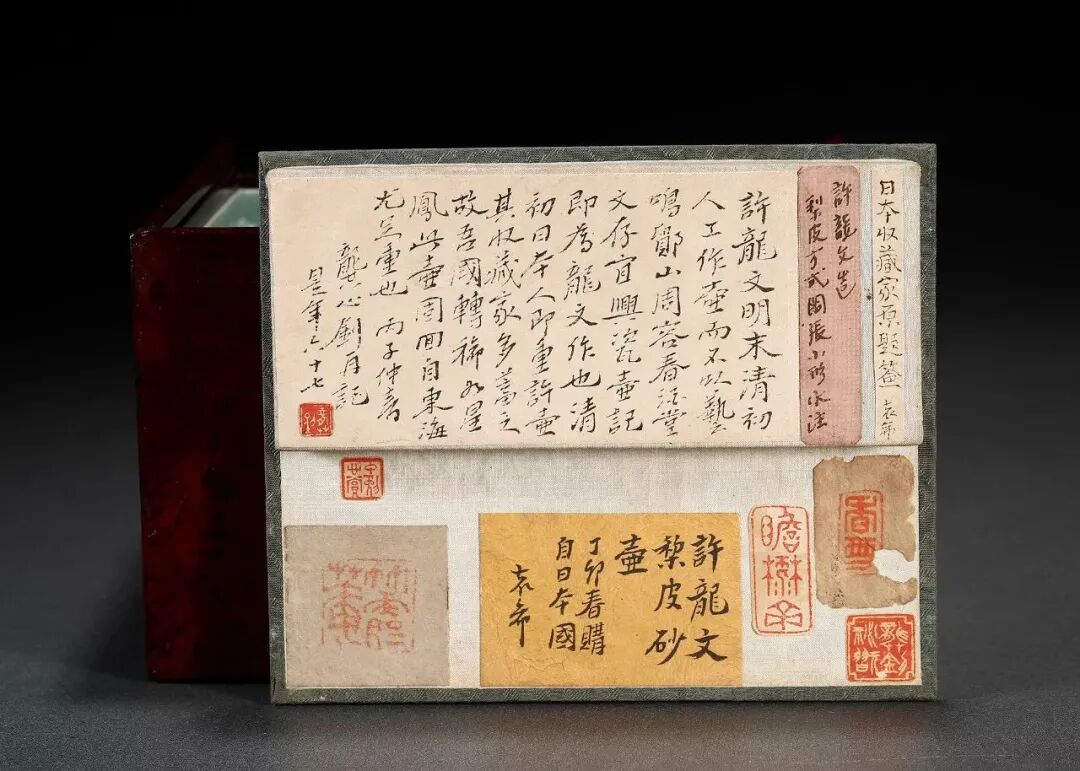 日本收藏家原題簽
許龍文造
許龍文明末清初
人工作壺而不以藝
鳴鄮山周容春酒堂
文存宜興瓷壺記
即為龍文作也清
初日本人即重許壺
其收藏家多蓄之
故吾國轉稀如星
鳳此壺回自東海
尤足重也 丙子仲春
龔心釗再記
是年六十七
許龍文
梨皮砂
壺
丁卯春購
自日本國